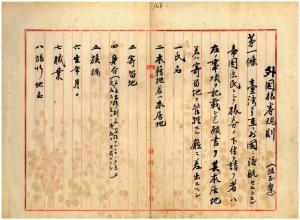 外国旅券規則
第一條 臺灣ヨリ直ニ外國ニ渡航セントスル
帝國臣民ニシテ旅券ノ下付ヲ請フ者ハ
左ノ事項ヲ記載シタル願書ヲ其本居地
又ハ寄留地ヲ管轄スル廳ニ差出スヘシ
一 氏名
二 本籍地若ハ本居地
三 寄留地
四 身分
五 族稱
六 生年月日
七 職業
八 旅行地名